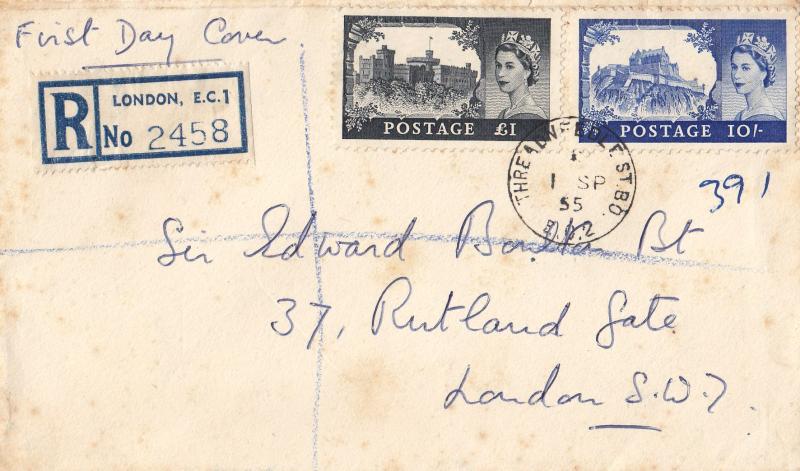 First Day Cover.
R
LONDON, E.C.1
No 2458
POSTAGE £1
POSTAGE 10/-
ST. B.O.
1 SP
55
E.C.2
391
Sir Edward Bt
37, Rutland Gate
London S.W.7.